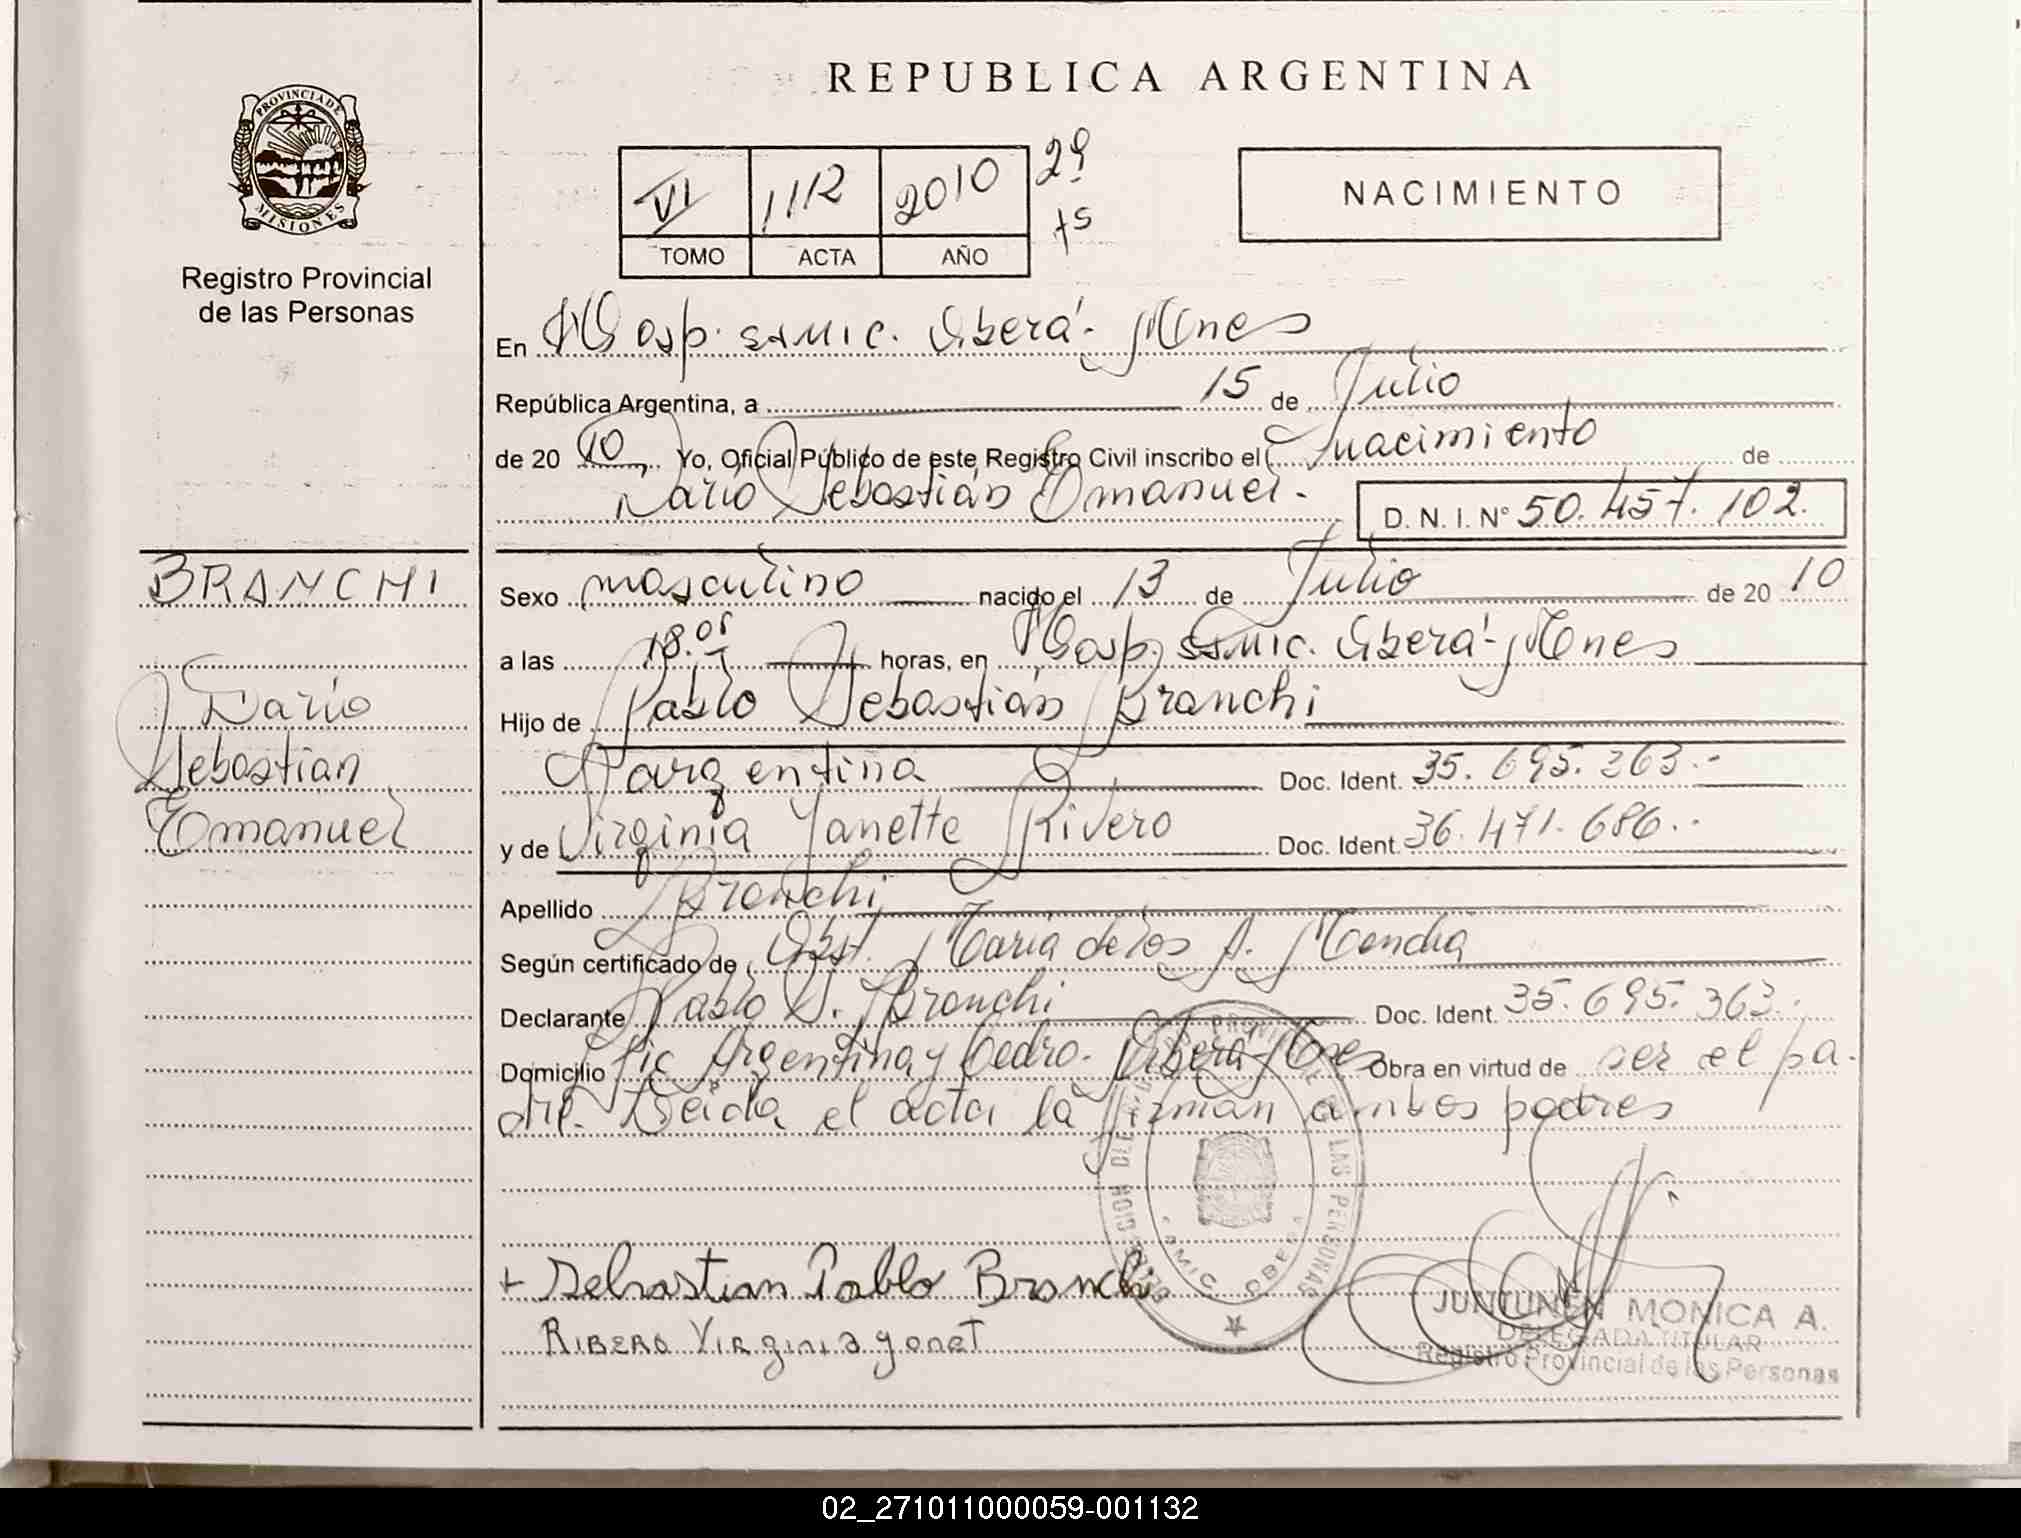 PROVINCIA DE
MISIONES
Registro Provincial
de las Personas
BRANCHI
Darío
Sebastian
Emanuel
REPUBLICA ARGENTINA
VI 1112 2010 2º
TOMO ACTA AÑO
NACIMIENTO
En Hosp. SAMIC. Oberá- Mnes
República Argentina, a 15 de Julio
de 20 10, Yo, Oficial Público de este Registro Civil inscribo el nacimiento de
Darío Sebastián Emanuel. D. N. I. Nº 50.457.102.
Sexo masculino nacido el 13 de Julio de 20 10
a las 18.05 horas, en Hosp. SAMIC. Oberá- Mnes
Hijo de Pablo Sebastián Branchi
argentina Doc. Ident. 35.695.363.-
y de Virginia Yanette Rivero Doc. Ident. 36.471.686.-
Apellido Branchi
Según certificado de Obst. María de los A. Mendia
Declarante Pablo S. Branchi Doc. Ident. 35.695.363.
Domicilio Argentina y Cedro. Oberá-Mnes Obra en virtud de ser el pa-
dre. Leida el acta la firman ambos padres
+ Sebastian Pablo Branchi
RIBERO VIRginia yanet
LAS PERSONAS
JUNTUNEN MONICA A.
DELEGADA TITULAR
Registro Provincial de las Personas
02_271011000059-001132